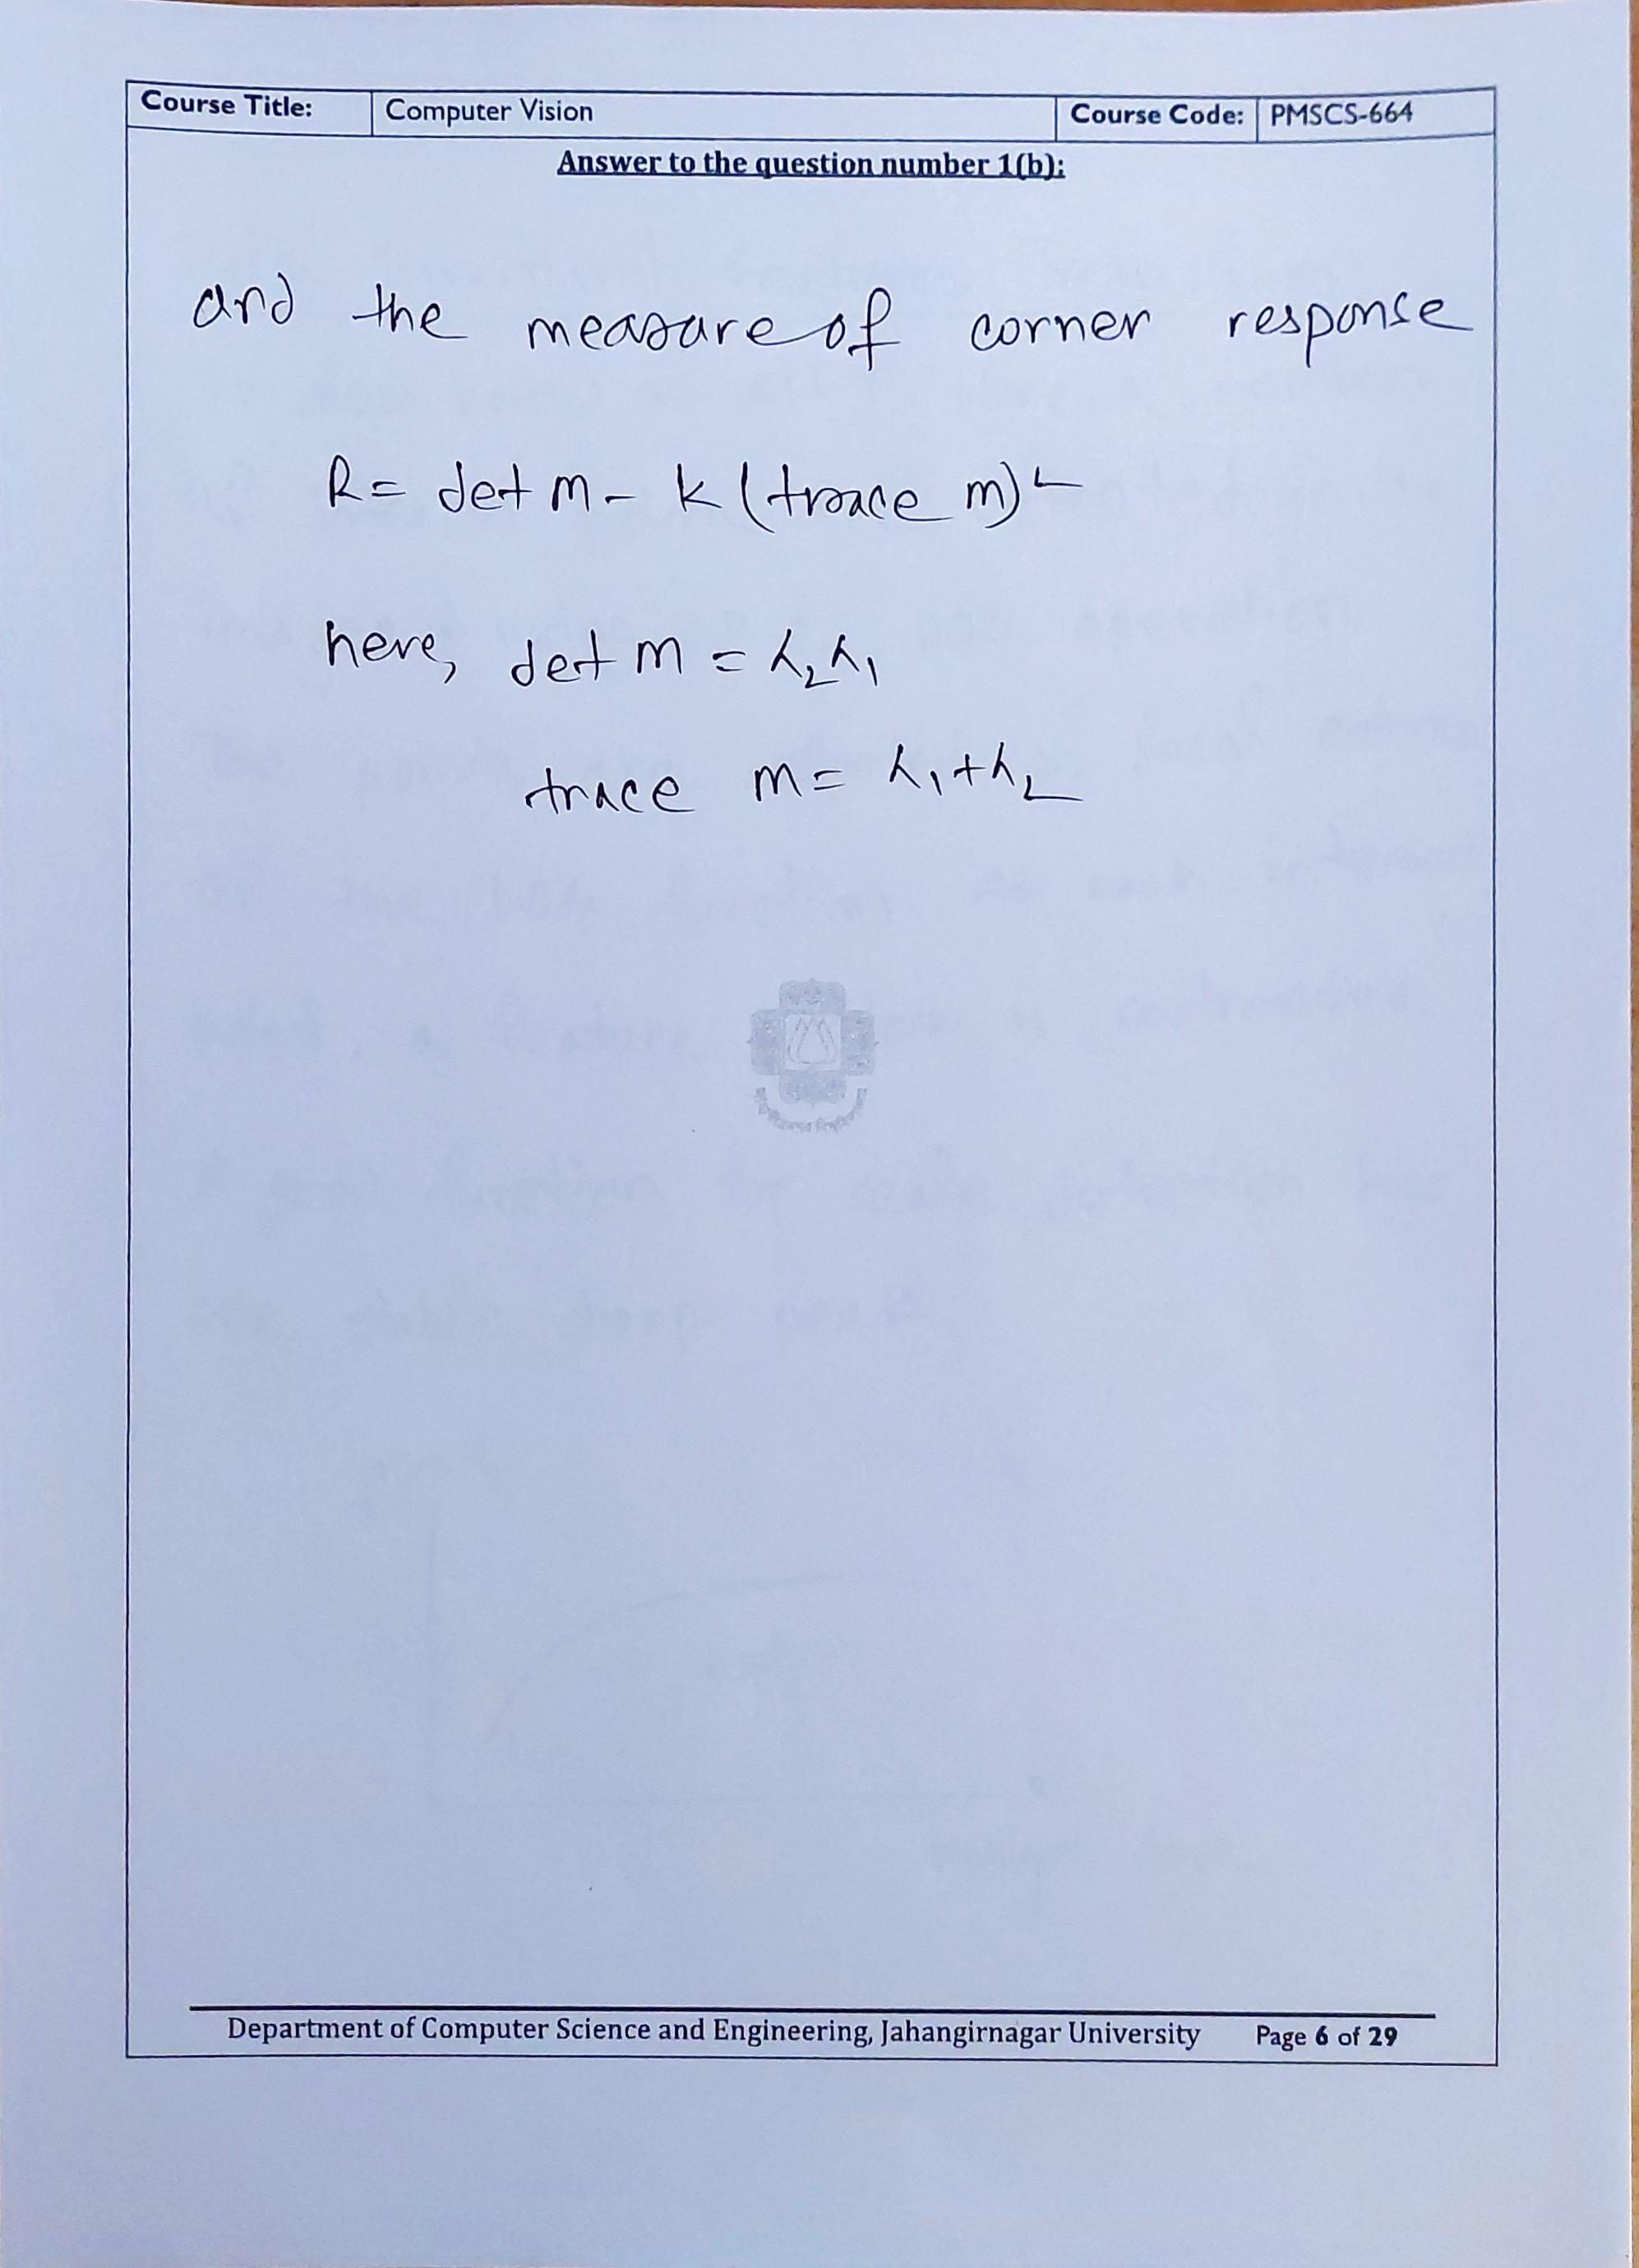 Course Title: Computer Vision Course Code: PMSCS-664
Answer to the question number 1(b):
and the measure of corner response
R = det m - k (trace m)²
here, det m = λ₂λ₁
trace m = λ₁+λ₂
Department of Computer Science and Engineering, Jahangirnagar University Page 6 of 29